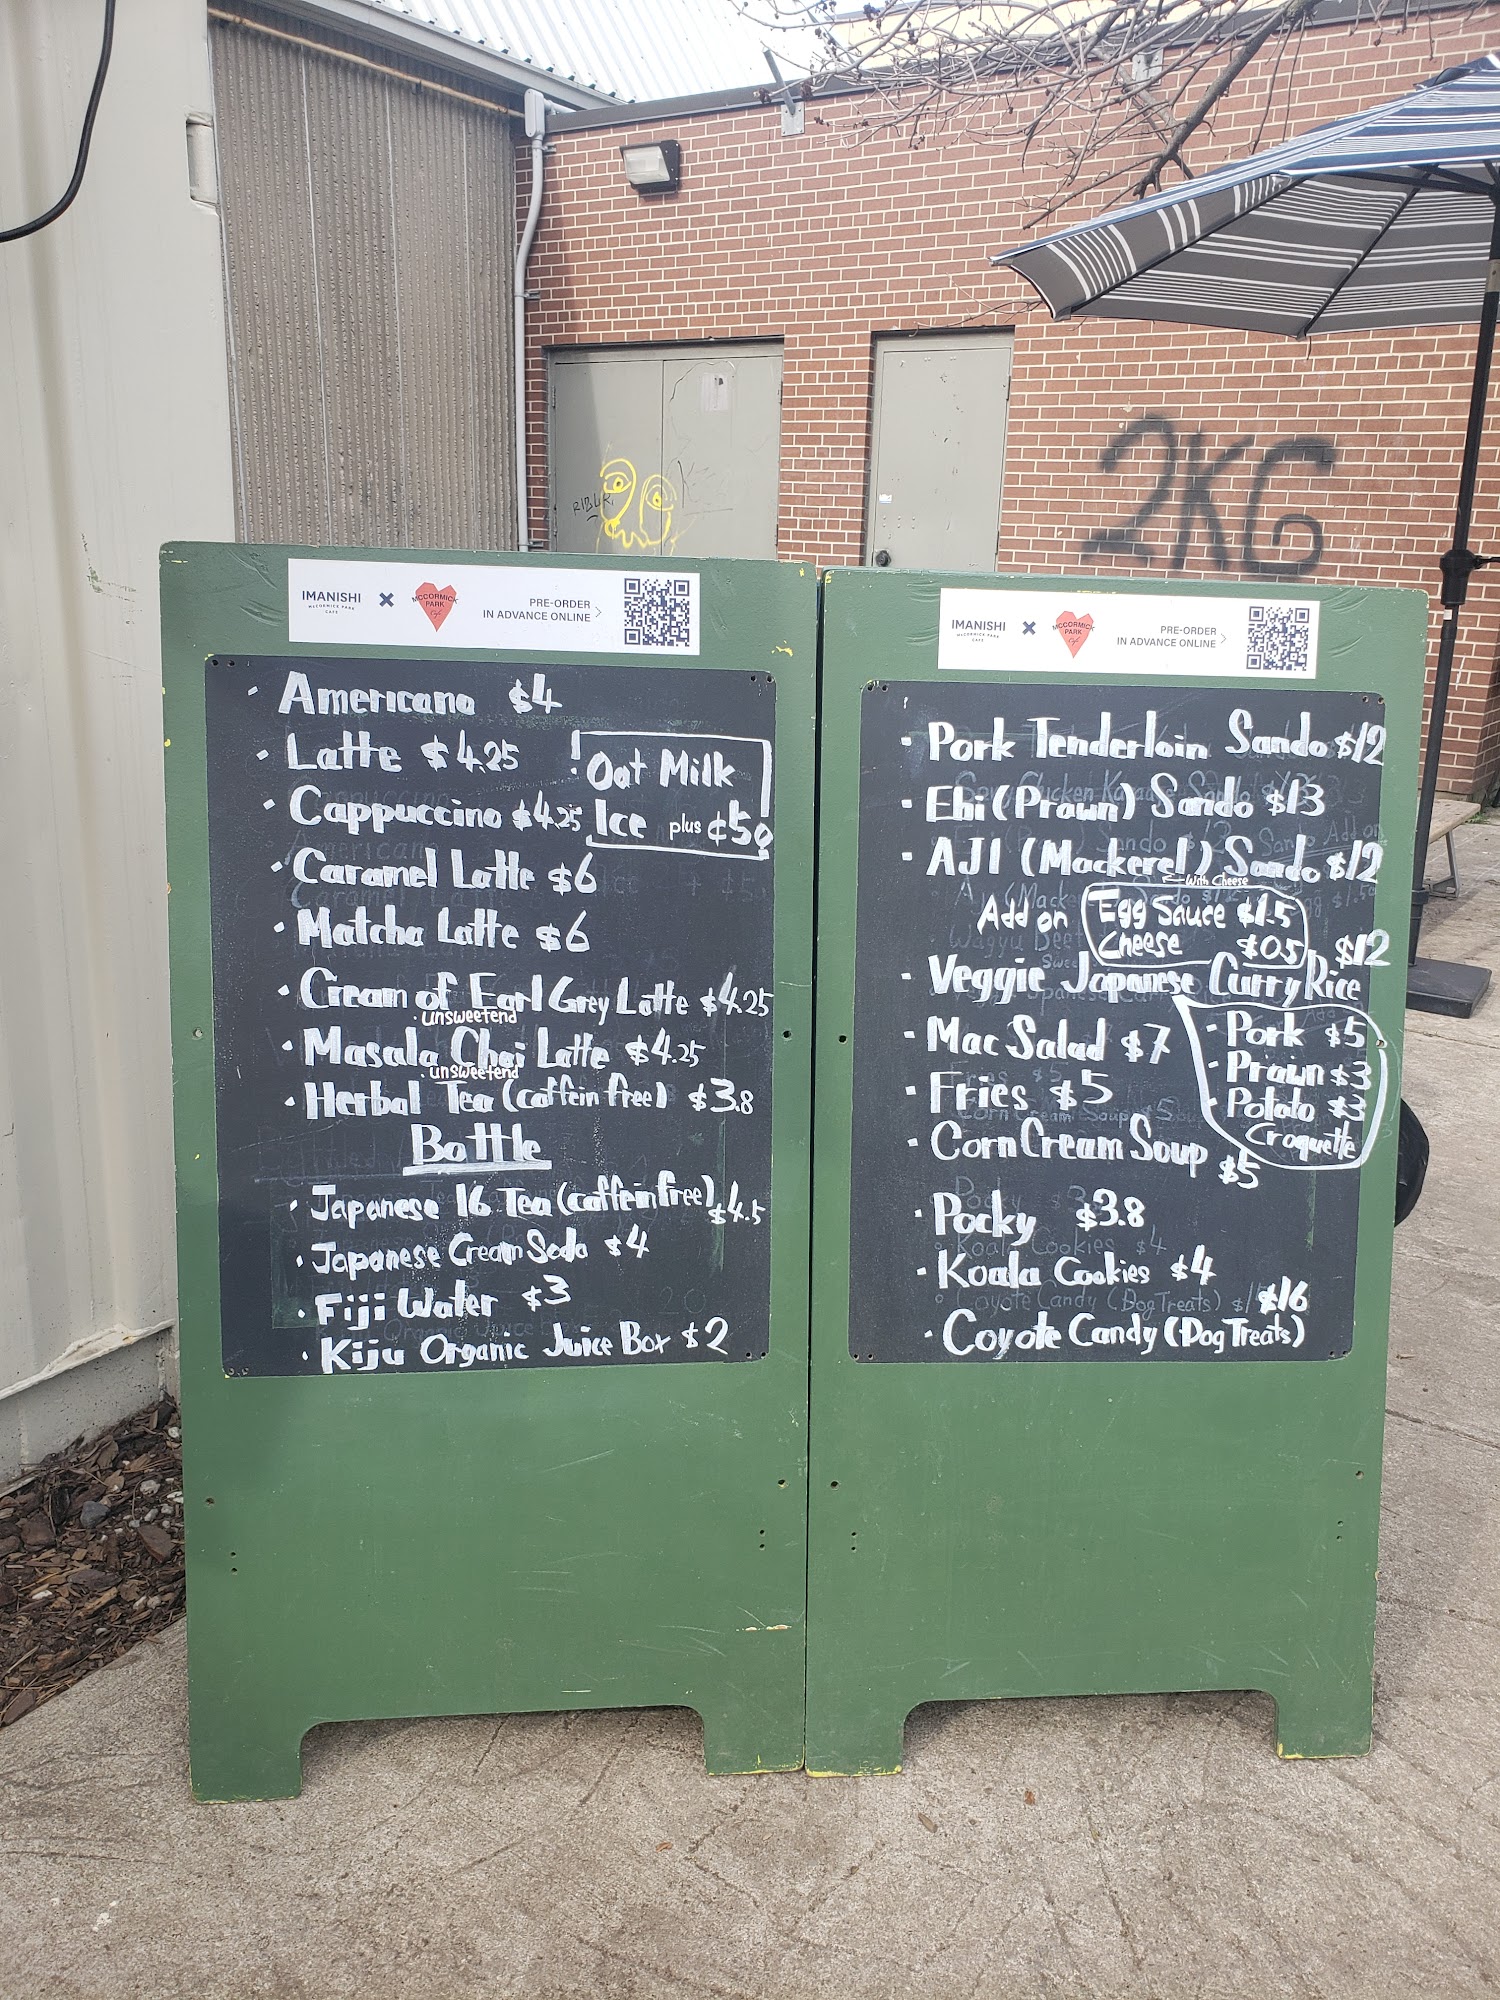 RIBUR
2KG
IMANISHI
McCORMICK PARK
CAFE
×
MCCORMICK
PARK
Cafe
PRE-ORDER
IN ADVANCE ONLINE
· Americano $4
· Latte $4.25
· Cappuccino $4.25
Oat Milk
Ice plus ¢50
· Caramel Latte $6
· Matcha Latte $6
· Cream of Earl Grey Latte $4.25
· unsweetend
· Masala Chai Latte $4.25
· unsweetend
· Herbal Tea (caffein free) $3.8
Bottle
· Japanese 16 Tea (caffein free) $4.5
· Japanese Cream Soda $4
· Fiji Water $3
· Kiju Organic Juice Box $2
IMANISHI
McCORMICK PARK
CAFE
×
MCCORMICK
PARK
Cafe
PRE-ORDER
IN ADVANCE ONLINE
· Pork Tenderloin Sando $12
· Ebi (Prawn) Sando $13
· AJI (Mackerel) Sando $12
← With Cheese
Add on Egg Sauce $1.5
Cheese $0.5
· Veggie Japanese Curry Rice $12
· Pork $5
· Prawn $3
· Potato $3
Croquette
· Mac Salad $7
· Fries $5
· Corn Cream Soup $5
· Pocky $3.8
· Koala Cookies $4
· Coyote Candy (Dog Treats) $16